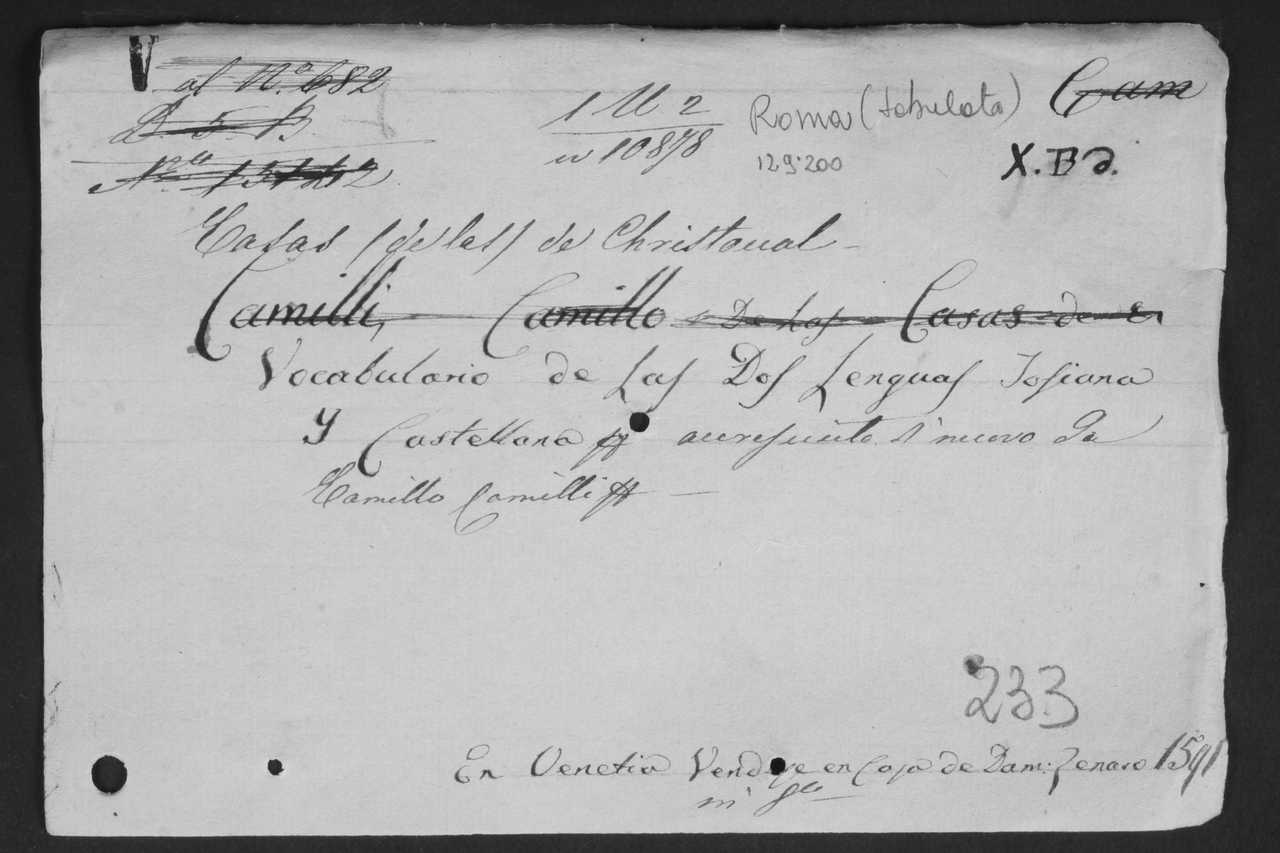 V
al Nº. 682
B 5 B.
Nro 15
1 U 2
10878
Roma
129.200
Cam
X. B d.
Casas (de las) de Christoual
Camilli, Camillo De Las Casas de
Vocabulario de Las Dos Lenguas Tosiana
y Castellana di nuovo da
Camillo Camilli
233
En Venetia Vendese en Casa de Dam: Zenaro 1591
in 8º